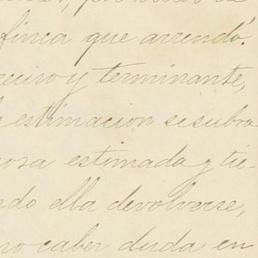 finca que arrendó.
preciso y terminante,
estimacion se subro
cosa estimada y tie-
do ella devolverse,
no caber duda en